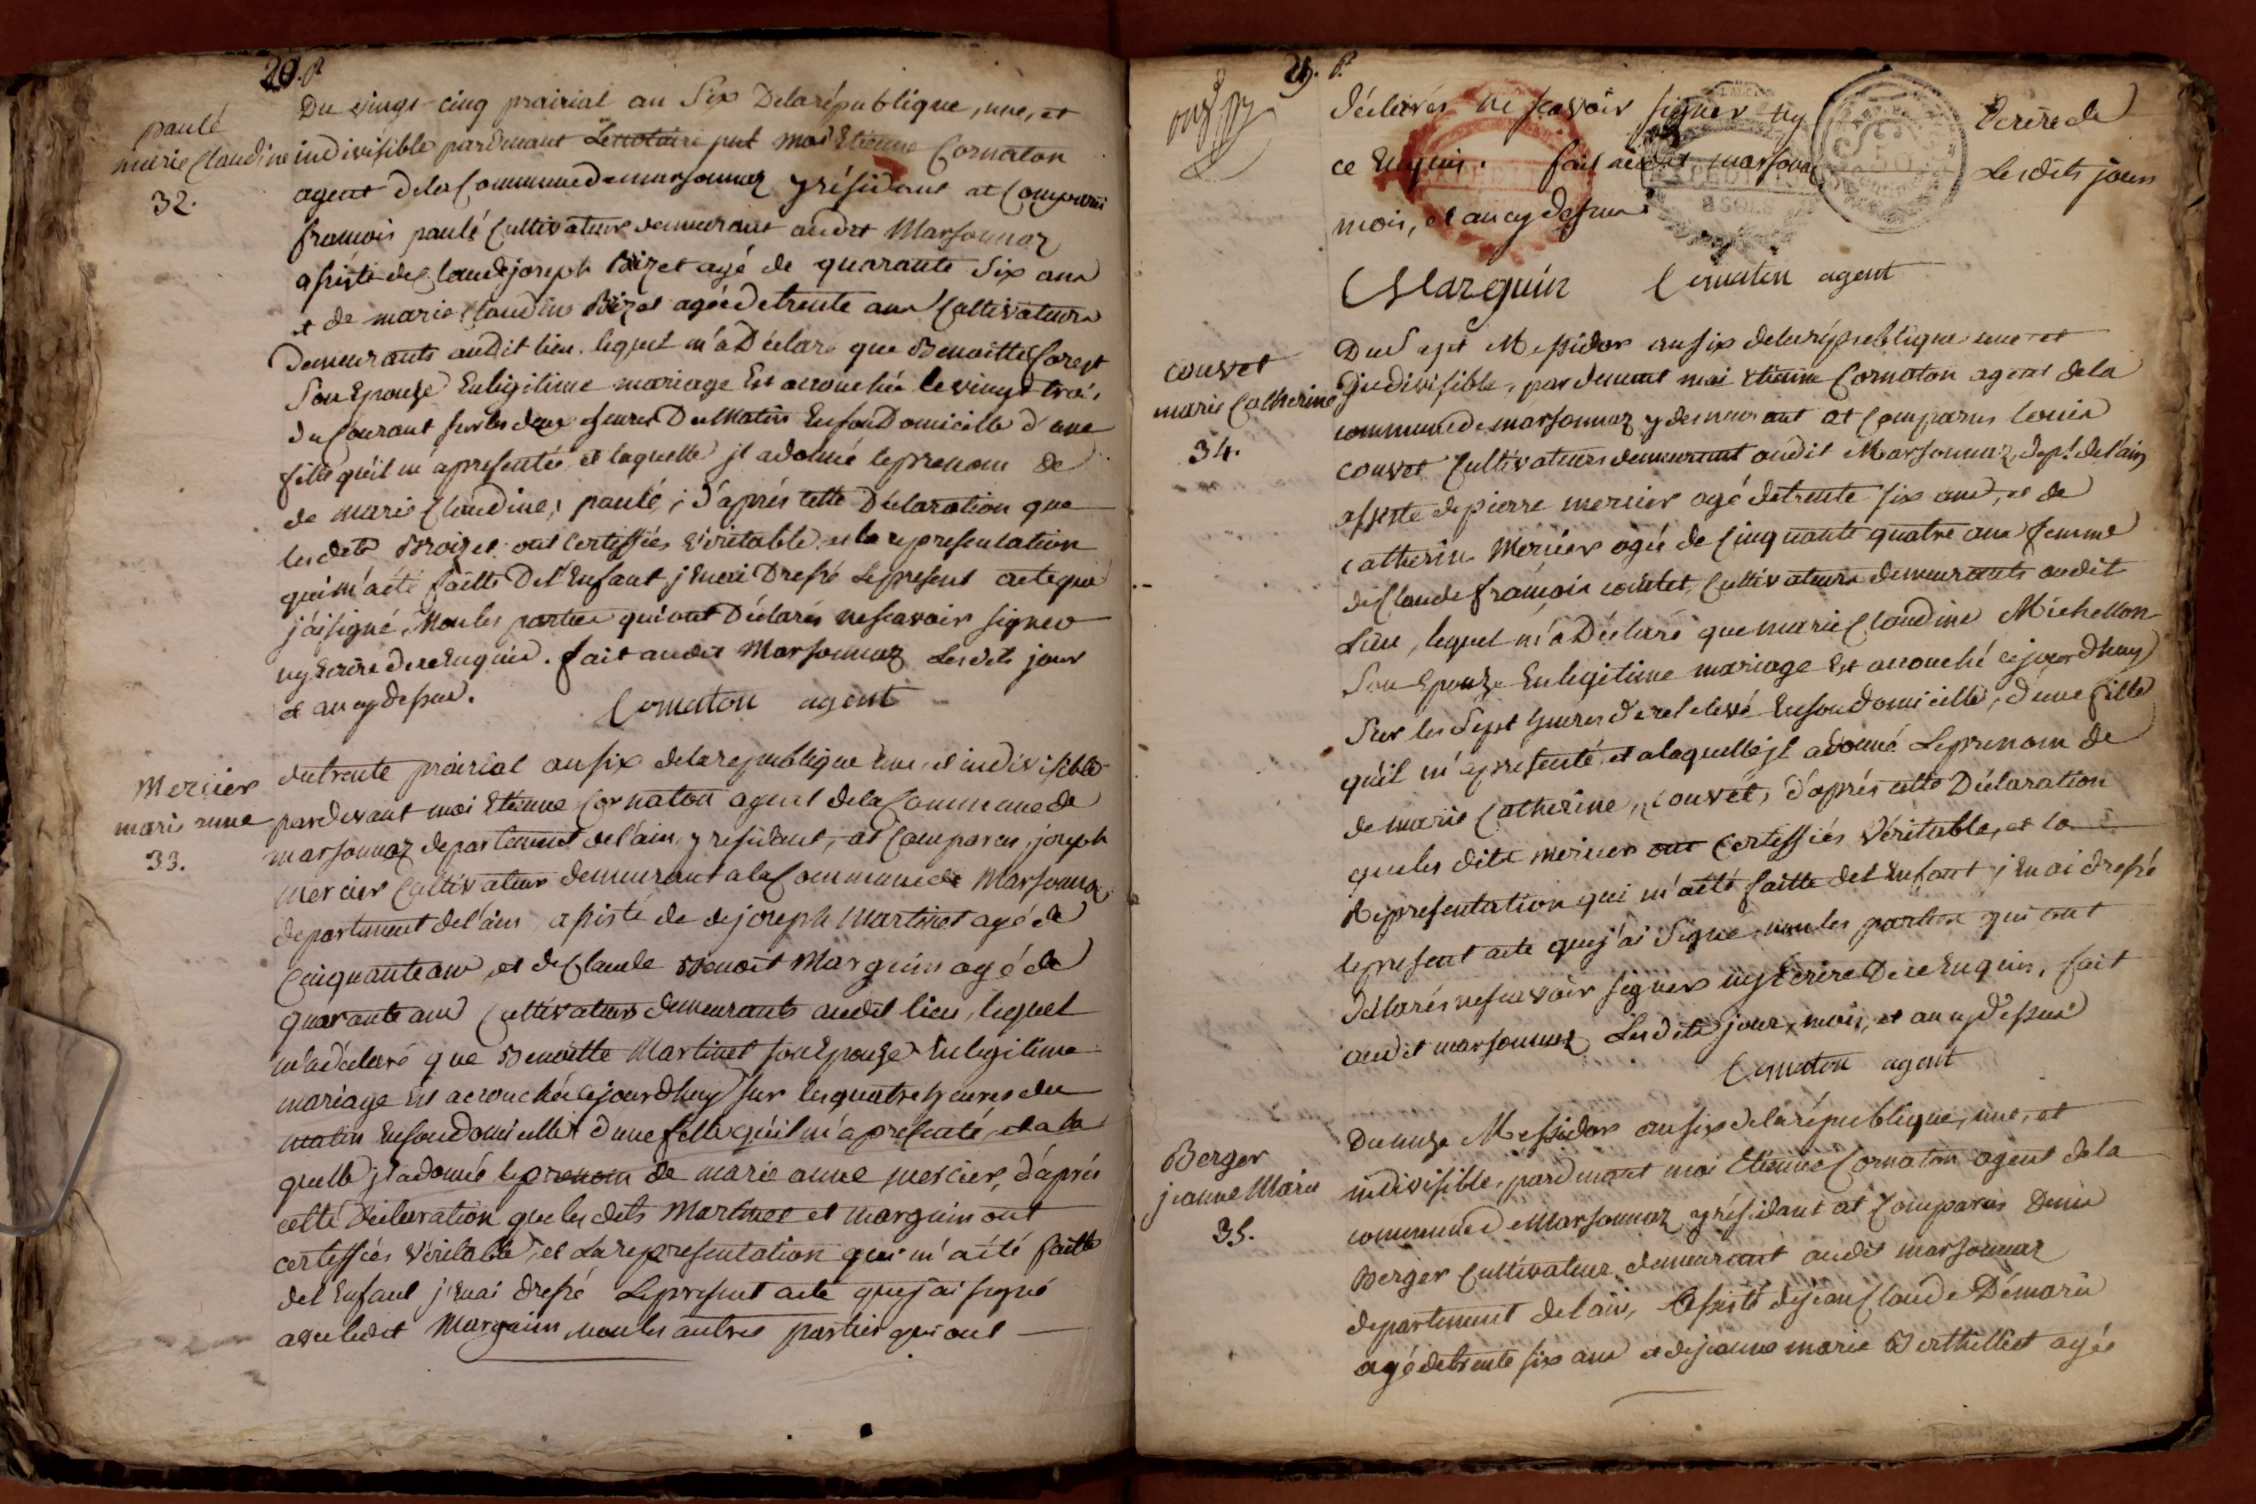 20. P.
paulé
marie Claudine
32.
Du vingt-cinq prairial an Six Delarépublique, une, et
indivisible pardevant Lenotaire put moi Etienne Cornaton
agent dela Commune de marsonnaz y résidant at Comparu
francois paulé Cultivateur demeurant audit Marsonnaz
assisté de Claude joseph Boizet agé de quarante Six ans
et de marie Claudine Boizet agée de trente ans Cultivateurs
demeurants audit lieu. lequel m'a Déclaré que Benoitte Forest
Son Epouze Enlegitime mariage Est accouchée le vingt trois
du Courant sur les deux heures Du Matin En son Domicille d'une
fille qu'il m'a presentée et laquelle jl a donné leprenom de
de marie Claudine, paulé, d'aprés cette Déclaration que
les dits Broizet ont certiffiés véritable et la representation
qui m'a été faitte De l'Enfant, j'En ai Dressé Lepresent acte que
j'ai signé, Non les parties qui ont Déclarés ne scavoir signer
ny Ecrire de ce Enquis. fait audit Marsonnaz Les dits jour
et an cy dessus.
Cornaton agent
Mercier
marie anne
33.
du trente prairial an six dela republique une et indivisible
pardevant moi Etienne Cornaton agent dela Commune de
marsonnaz departement de l'ain, y residant, at Comparu, joseph
mercier Cultivateur demeurant ala Commune de Marsonnaz
departement de l'ain assisté de de joseph Martinet agé de
Cinquante ans, et de Claude Benoit Marguin agé de
quarante ans Cultivateurs demeurants audit lieu, lequel
m'a déclaré que Benoitte Martinet son Epouze En legitime
mariage Est accouchée cejourdhuy sur les quatre heures du
matin En son domicille d'une fille qu'il m'a presenté, et a la
quelle jl a donné le prenom de marie anne mercier, d'aprés
cette Déclaration que les dits Martinet et marguin ont
certiffiés véritable, et La representation qui m'a été faitte
de l'Enfant j'En ai dressé Lepresent acte que j'ai signé
avec ledit Marguin, non les autres parties qui ont
21. P.
déclarés ne scavoir signer ny Ecrire de
ce Enquis. fait audit marsonnaz Lesdits jour
mois, et an cy dessus.
Marguin Cornaton agent
couvet
marie Catherine
34.
Du Sept Messidor an six dela république une et
indivisible, pardevant moi Etienne Cornaton agent dela
commune de marsonnaz y demeurant at Comparu louis
couvet Cultivateur demeurant audit Marsonnaz, Dept. de l'ain
assisté de pierre mercier agé de trente six ans, et de
catherine Mercier agée de Cinquante quatre ans femme
de Claude francois couvet, Cultivateurs demeurants audit
Lieu, lequel m'a Déclaré que marie Claudine Michellon
Son Epouze En legitime mariage Est accouché cejourdhuy
Sur les Sept heures de relelevé En son domicille, d'une fille
qu'il m'a presenté, et a laquelle jl a donné Le prenom de
de marie Catherine, Couvet, d'aprés cette Déclaration
que les dits mercier ont Certiffiés Véritable, et la
Representation qui m'a été faitte de l'Enfant j'En ai dressé
le present acte que j'ai Signé non les parties qui ont
déclarés ne scavoir signer ny Ecrire De ce Enquis, fait
audit marsonnaz Les dits jour, mois, et an cy dessus
Cornaton agent
Berger
jeanne Marie
35.
Du onze Messidor an six dela république, une, et
indivisible, pardevant moi Etienne Cornaton agent dela
commune de Marsonnaz y résidant at Comparus Denis
Berger Cultivateur demeurant audit marsonnaz
departement de l'ain, Assisté de jean Claude Démaria
agé de trente six ans et de jeanne marie Berthellet agée